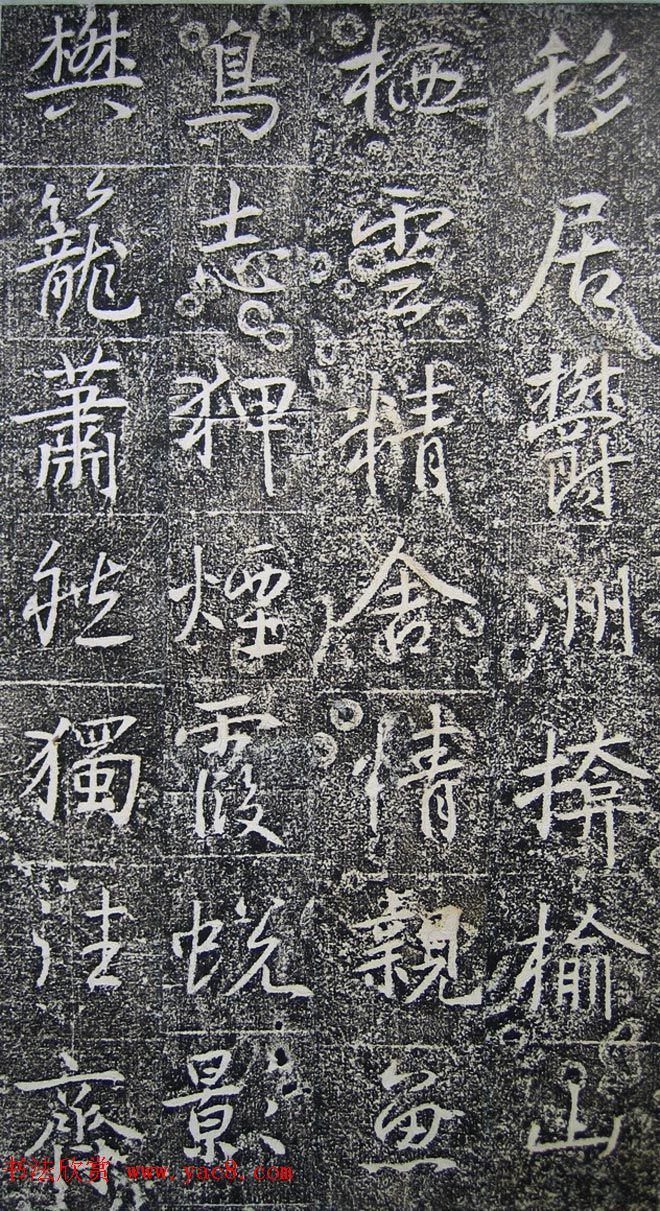 移居鬱洲揜榆山
栖雲精舍情親魚
鳥志狎煙霞蛻景
樊籠蕭然獨往齋
书法欣赏 www.yac8.com